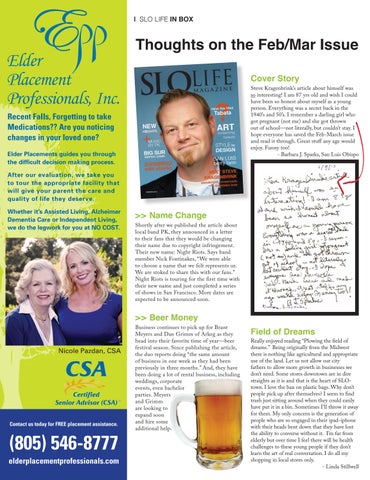 Epp
Elder
Placement
Professionals, Inc.
Recent Falls, Forgetting to take
Medications?? Are you noticing
changes in your loved one?
Elder Placements guides you through
the difficult decision making process.
After our evaluation, we take you
to tour the appropriate facility that
will give your parent the care and
quality of life they deserve.
Whether it's Assisted Living, Alzheimer
Dementia Care or Independent Living,
we do the legwork for you at NO COST.
Nicole Pazdan, CSA
CSA
Certified
Senior Advisor (CSA)
Contact us today for FREE placement assistance.
(805) 546-8777
elderplacementprofessionals.com
| SLO LIFE IN BOX
Thoughts on the Feb/Mar Issue
SLO LIFE
MAGAZINE
Tabata
NEW
ART
BIG SUR
STYLE
DESIGN
SAN LUIS
MEET STEVE
>> Name Change
Shortly after we published the article about
local band PK, they announced in a letter
to their fans that they would be changing
their name due to copyright infringement.
Their new name: Night Riots. Says band
member Nick Fontinakes, "We were able
to choose a name that we felt represents us.
We are stoked to share this with our fans."
Night Riots is touring for the first time with
their new name and just completed a series
of shows in San Francisco. More dates are
expected to be announced soon.
>> Beer Money
Business continues to pick up for Brant
Myers and Dan Grimm of Arkeg as they
head into their favorite time of year—beer
festival season. Since publishing the article,
the duo reports doing "the same amount
of business in one week as they had been
previously in three months." And, they have
been doing a lot of rental business, including
weddings, corporate
events, even bachelor
parties. Meyers
and Grimm
are looking to
expand soon
and hire some
additional help.
Cover Story
Steve Kragenbrink's article about himself was
so interesting! I am 87 yrs old and wish I could
have been so honest about myself as a young
person. Everything was a secret back in the
1940's and 50's. I remember a darling girl who
got pregnant (not me) and she got thrown
out of school—not literally, but couldn't stay. I
hope everyone has saved the Feb-March issue
and read it through. Great stuff any age would
enjoy. Funny too!
- Barbara J. Sparks, San Luis Obispo
Field of Dreams
Really enjoyed reading "Plowing the field of
dreams." Being originally from the Midwest
there is nothing like agricultural and appropriate
use of the land. Let us not allow our city
fathers to allow more growth in businesses we
don't need. Some stores downtown are in dire
straights as it is and that is the heart of SLO-
town. I love the ban on plastic bags. Why don't
people pick up after themselves? I seem to find
trash just sitting around when they could easily
have put it in a bin. Sometimes I'll throw it away
for them. My only concern is the generation of
people who are so engaged in their ipad-iphone
with their heads bent down that they have lost
the ability to converse without it. I'm far from
elderly but over time I feel there will be health
challenges to these young people if they don't
learn the art of real conversation. I do all my
shopping in local stores only.
- Linda Stillwell